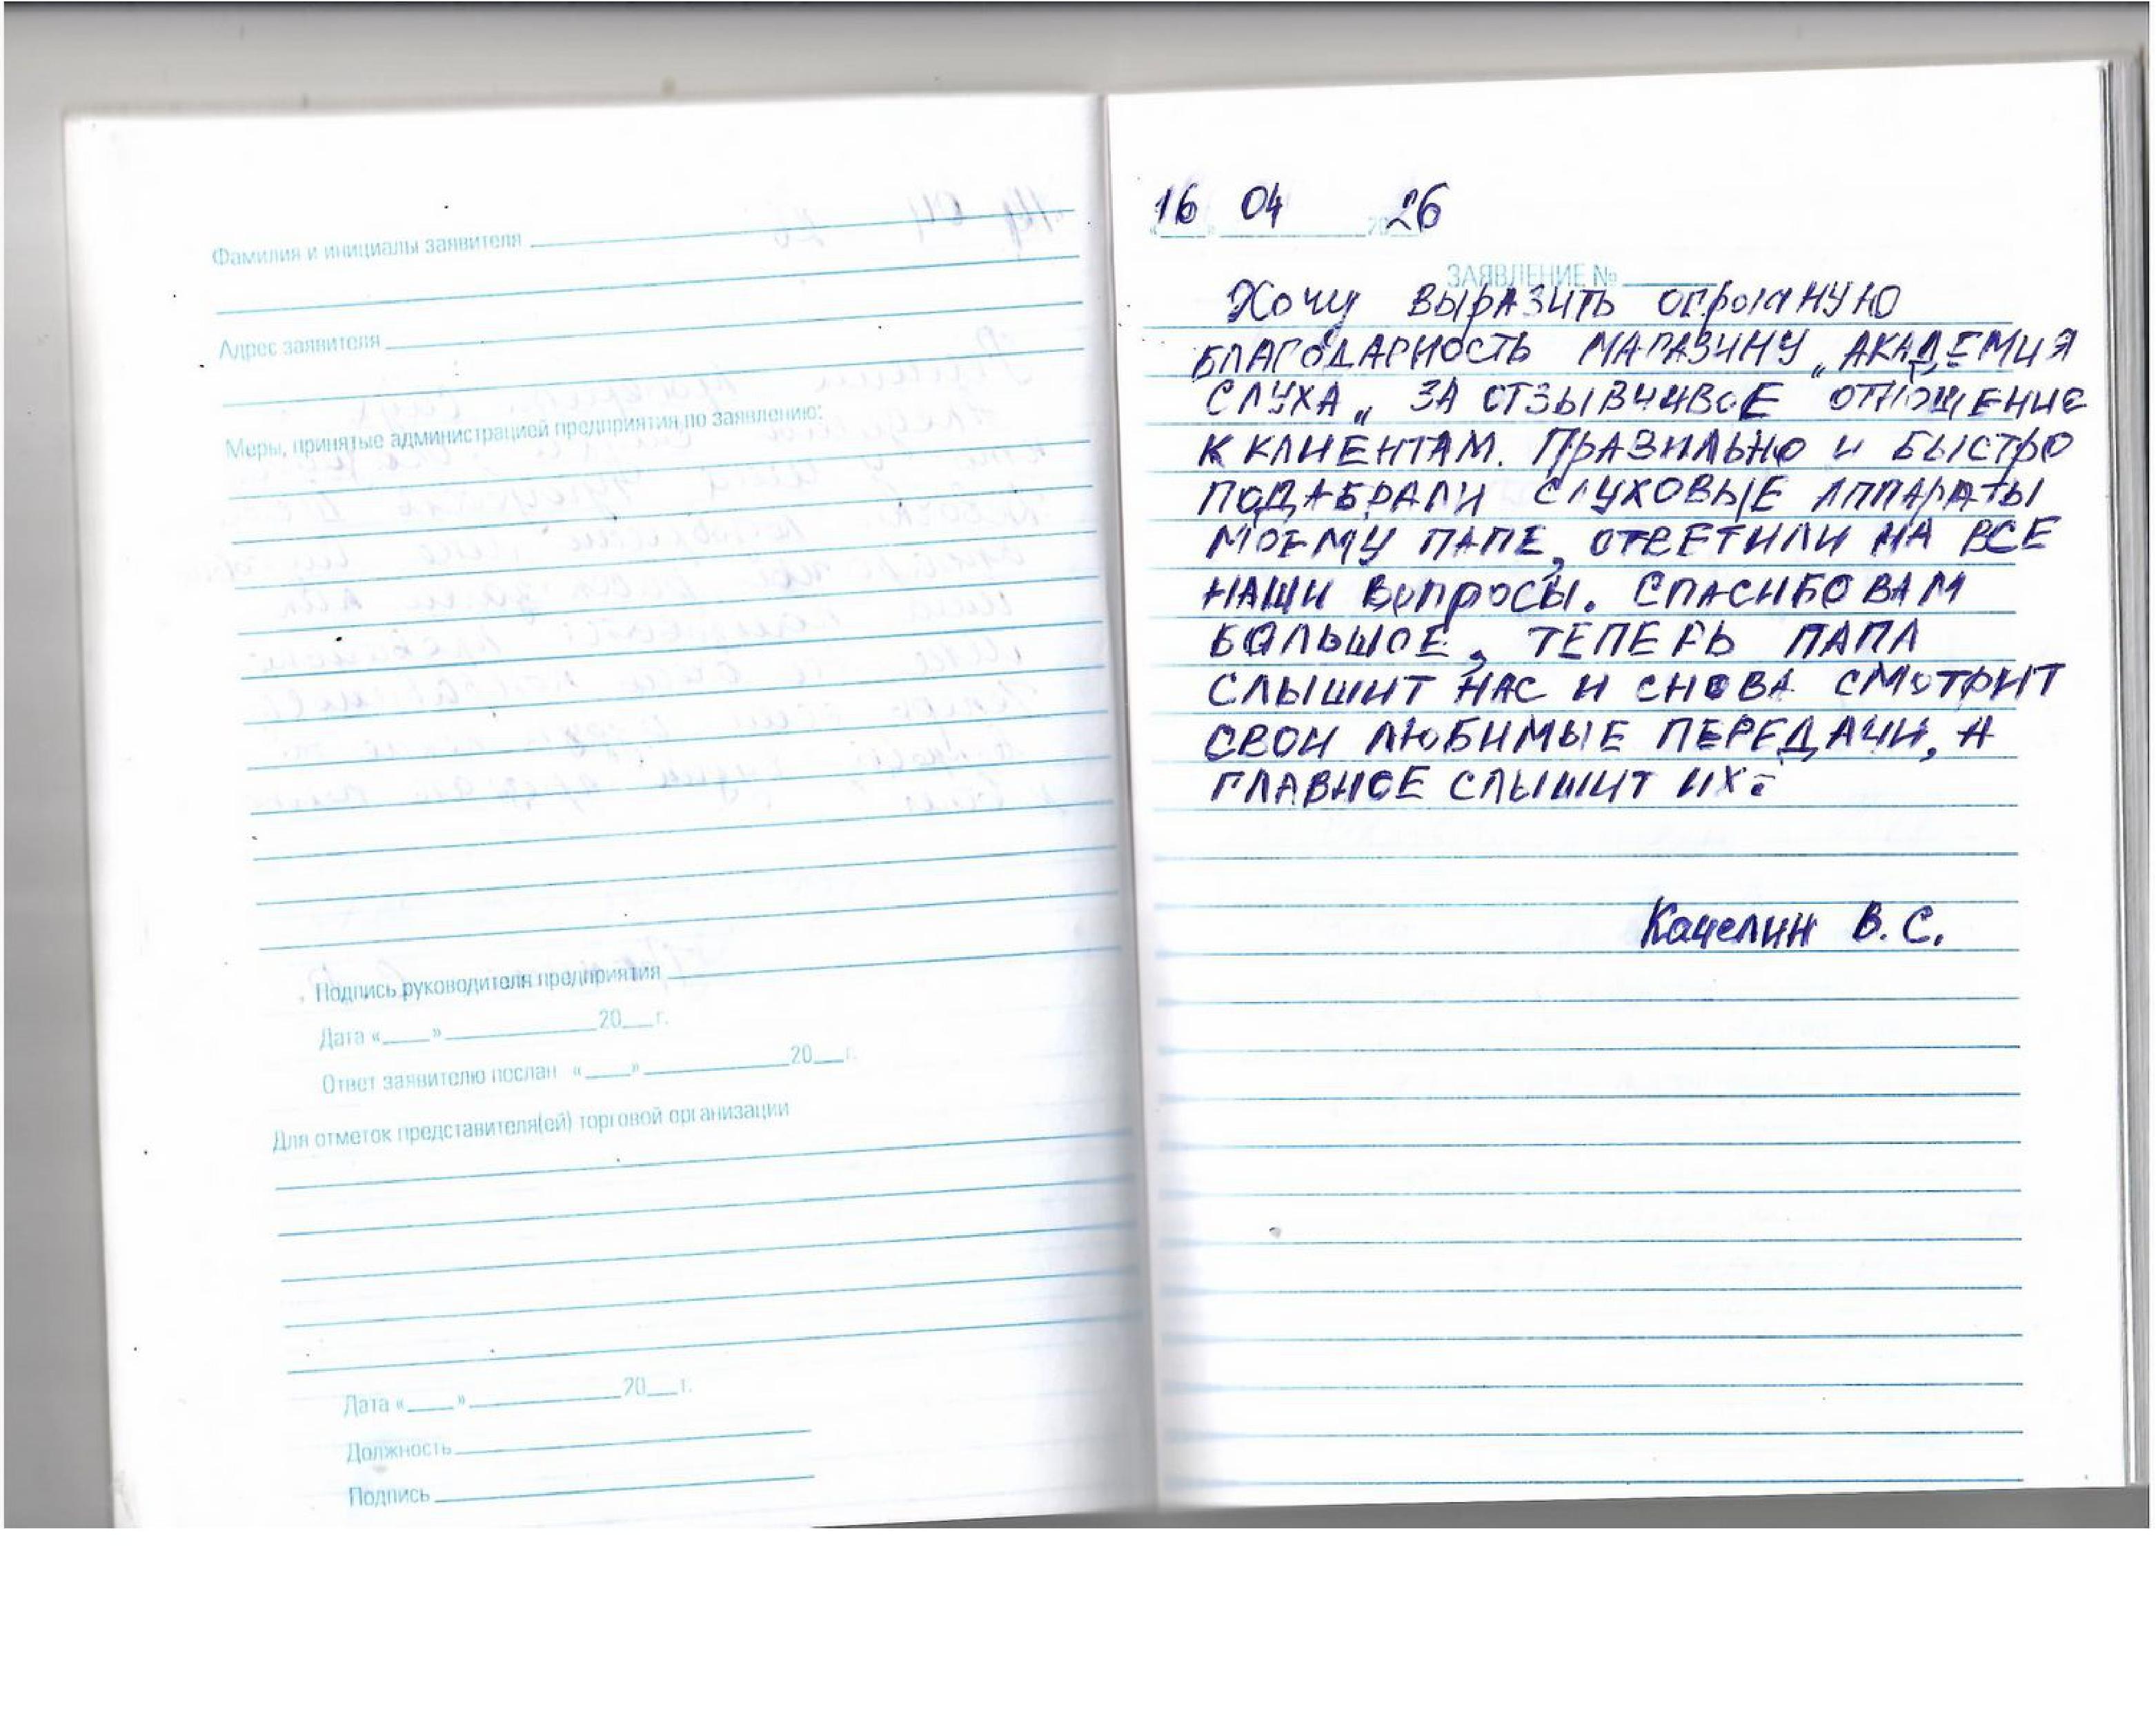 Фамилия и инициалы заявителя
Адрес заявителя
Меры, принятые администрацией предприятия по заявлению:
Подпись руководителя предприятия
Дата «____»____________20___г.
Ответ заявителю послан «____»____________20___г.
Для отметок представителя(ей) торговой организации
Дата «____»____________20___г.
Должность
Подпись
16 04 2026
ЗАЯВЛЕНИЕ №
Хочу выразить огромную
БЛАГОДАРНОСТЬ МАГАЗИНУ „АКАДЕМИЯ
СЛУХА„ ЗА ОТЗЫВЧИВОЕ ОТНОШЕНИЕ
К КЛИЕНТАМ. ПРАВИЛЬНО И БЫСТРО
ПОДАБРАЛИ СЛУХОВЫЕ АППАРАТЫ
МОЕМУ ПАПЕ, ОТВЕТИЛИ НА ВСЕ
НАШИ ВОПРОСЫ. СПАСИБО ВАМ
БОЛЬШОЕ, ТЕПЕРЬ ПАПА
СЛЫШИТ НАС И СНОВА СМОТРИТ
СВОИ ЛЮБИМЫЕ ПЕРЕДАЧИ, А
ГЛАВНОЕ СЛЫШИТ ИХ.
В. С.